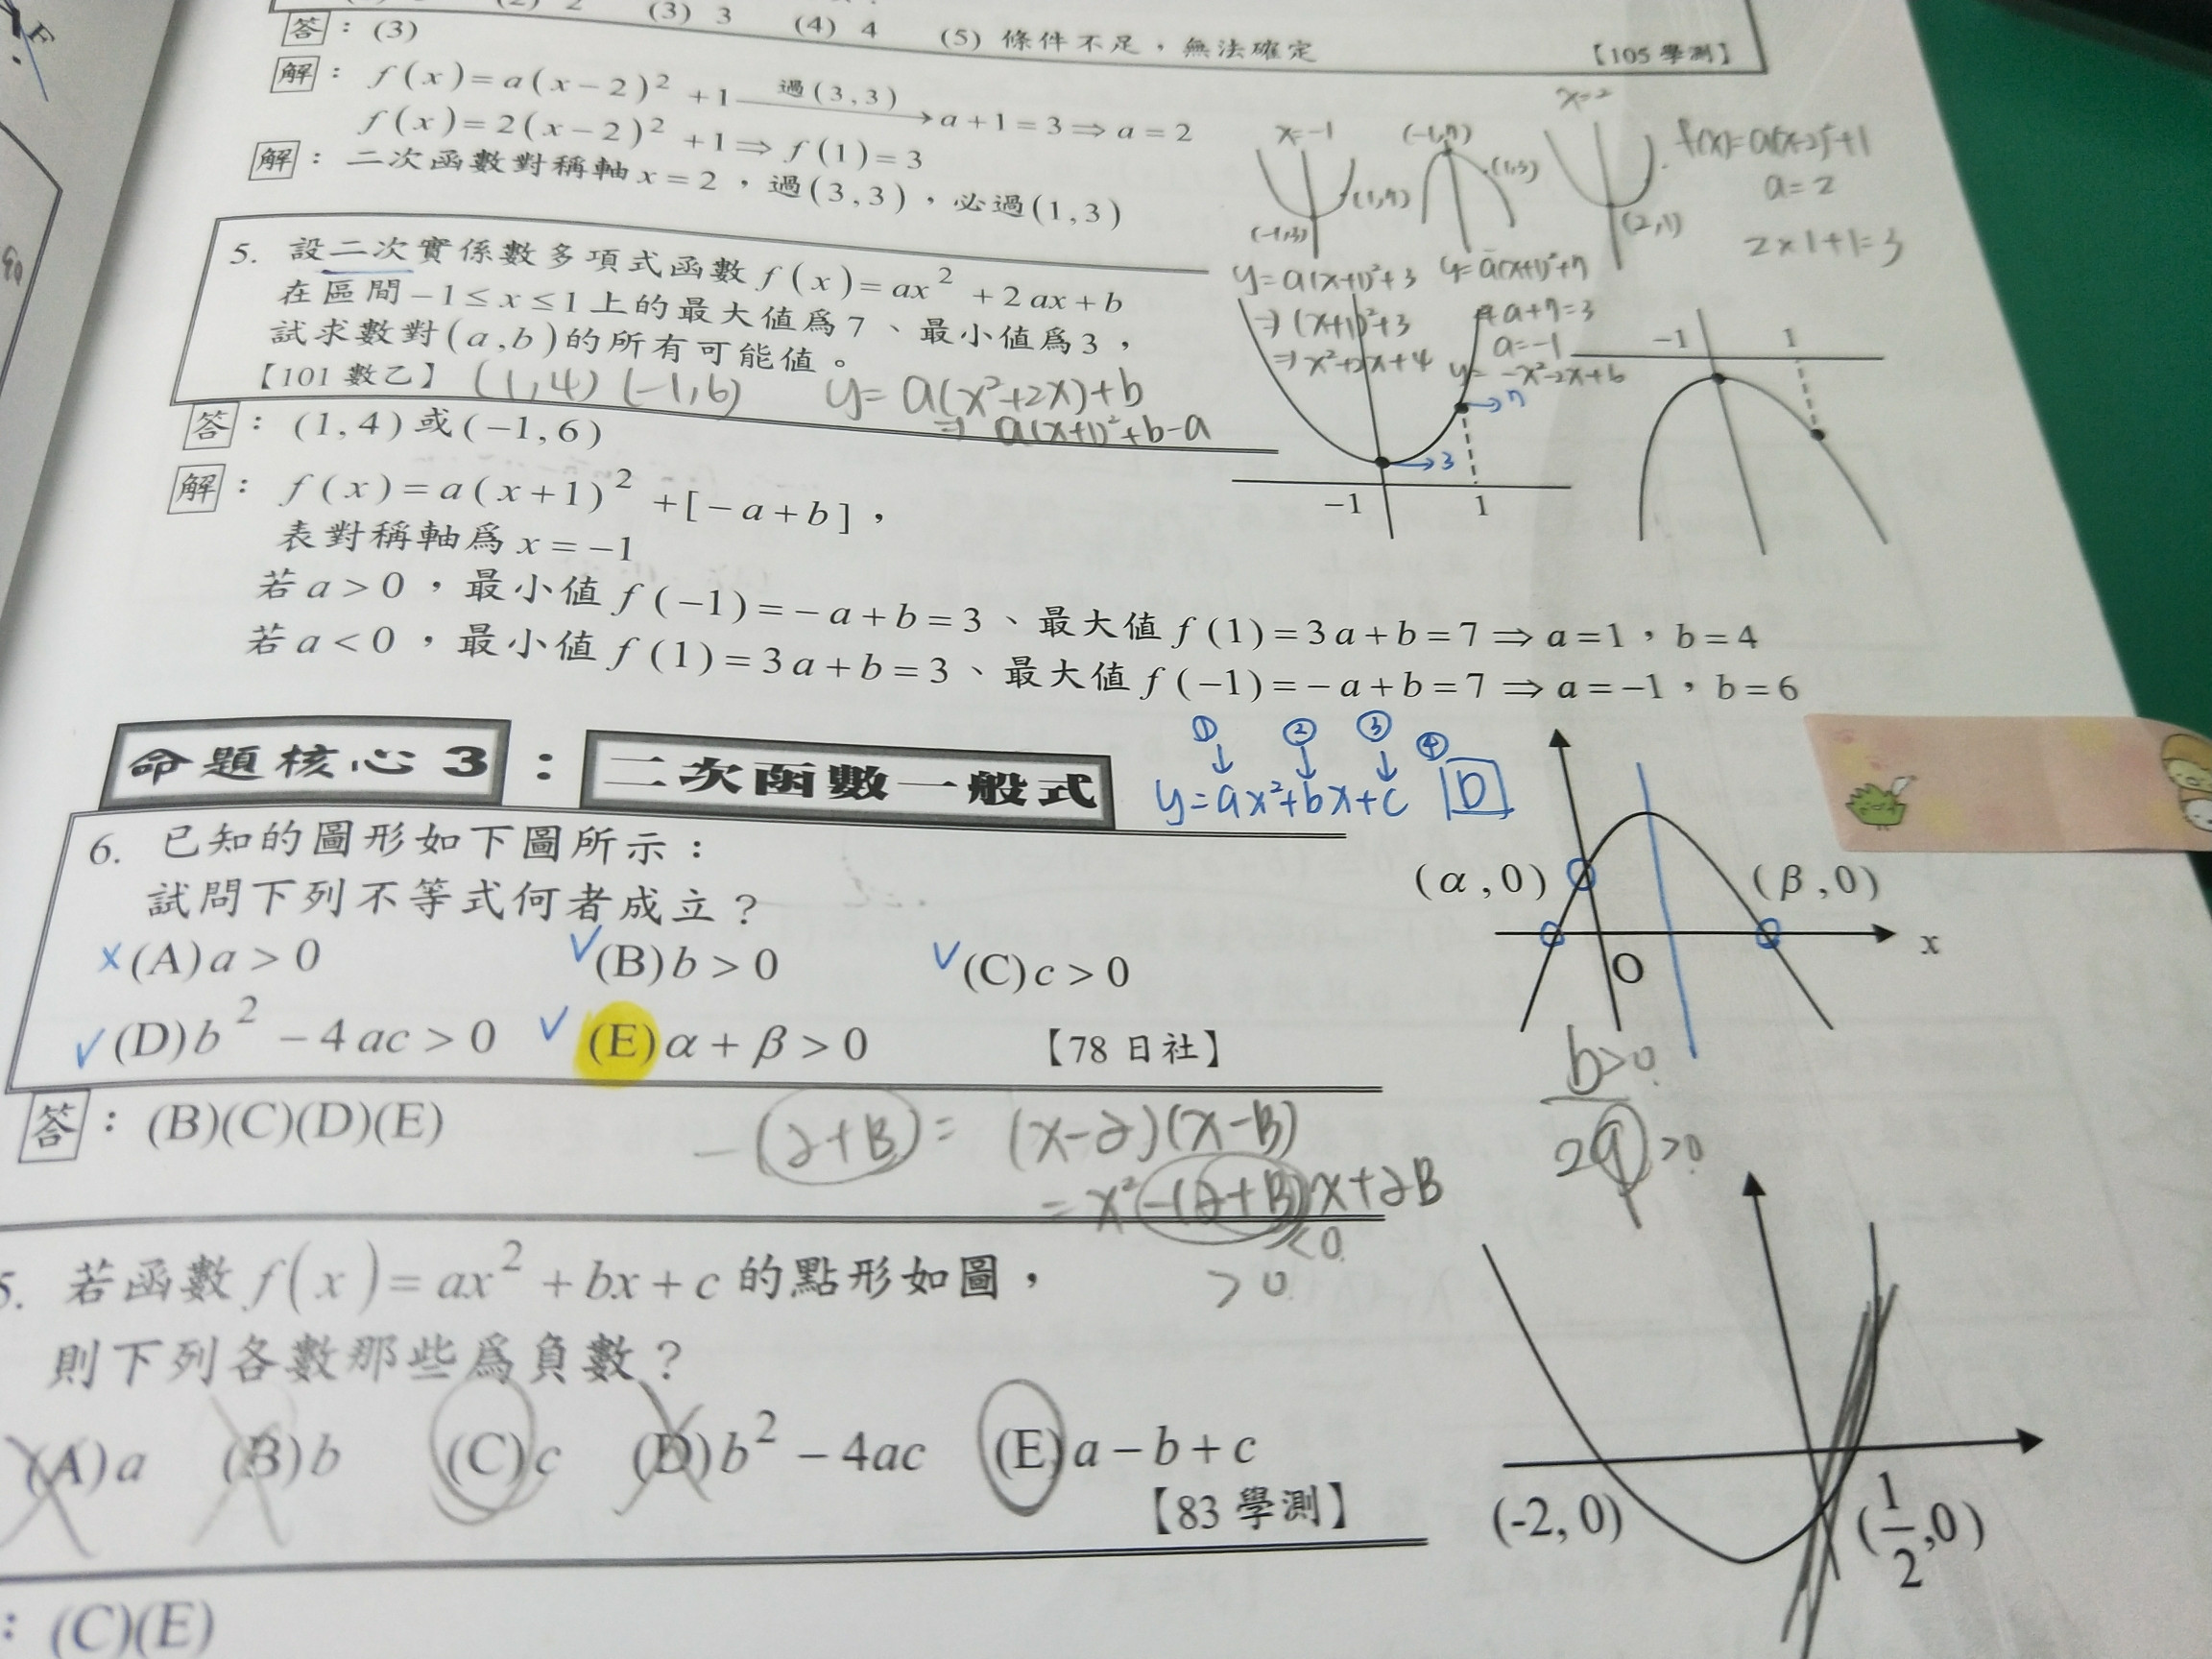 (3) 3 (4) 4 (5) 條件不足,無法確定 【105 學測】
答:(3)
解:f(x)=a(x-2)² +1 過(3,3)→ a+1=3⇒a=2
f(x)=2(x-2)² +1⇒f(1)=3
解:二次函數對稱軸x=2,過(3,3),必過(1,3)
x=-1
(-1,7)
x=2
f(x)=a(x-2)²+1
a=2
2×1+1=3
(1,7)
(1,3)
(-1,3)
(2,1)
5. 設二次實係數多項式函數f(x)=ax²+2ax+b
在區間-1≤x≤1上的最大值爲7、最小值爲3,
試求數對(a,b)的所有可能值。
【101 數乙】 (1,4) (-1,6) y=a(x²+2x)+b
⇒ a(x+1)²+b-a
y=a(x+1)²+3
⇒(x+1)²+3
⇒x²+2x+4
y=a(x+1)²+7
4a+7=3
a=-1
y=-x²-2x+6
→7
→3
-1 1
-1 1
答:(1,4)或(-1,6)
解:f(x)=a(x+1)²+[-a+b],
表對稱軸爲x=-1
若a>0,最小值f(-1)=-a+b=3、最大值f(1)=3a+b=7⇒a=1,b=4
若a<0,最小值f(1)=3a+b=3、最大值f(-1)=-a+b=7⇒a=-1,b=6
命題核心3:二次函數一般式
① ② ③ ④
y=ax²+bx+c D
6. 已知的圖形如下圖所示:
試問下列不等式何者成立?
×(A)a>0 ✓(B)b>0 ✓(C)c>0
✓(D)b²-4ac>0 ✓(E)α+β>0 【78 日社】
(α,0) (β,0)
O x
答:(B)(C)(D)(E)
-(α+β)= (x-α)(x-β)
=x²-(α+β)x+αβ
<0
>0
b>0
2a >0
5. 若函數f(x)=ax²+bx+c的點形如圖,
則下列各數那些爲負數?
(A)a (B)b (C)c (D)b²-4ac (E)a-b+c
【83 學測】
(-2,0) (1/2,0)
:(C)(E)